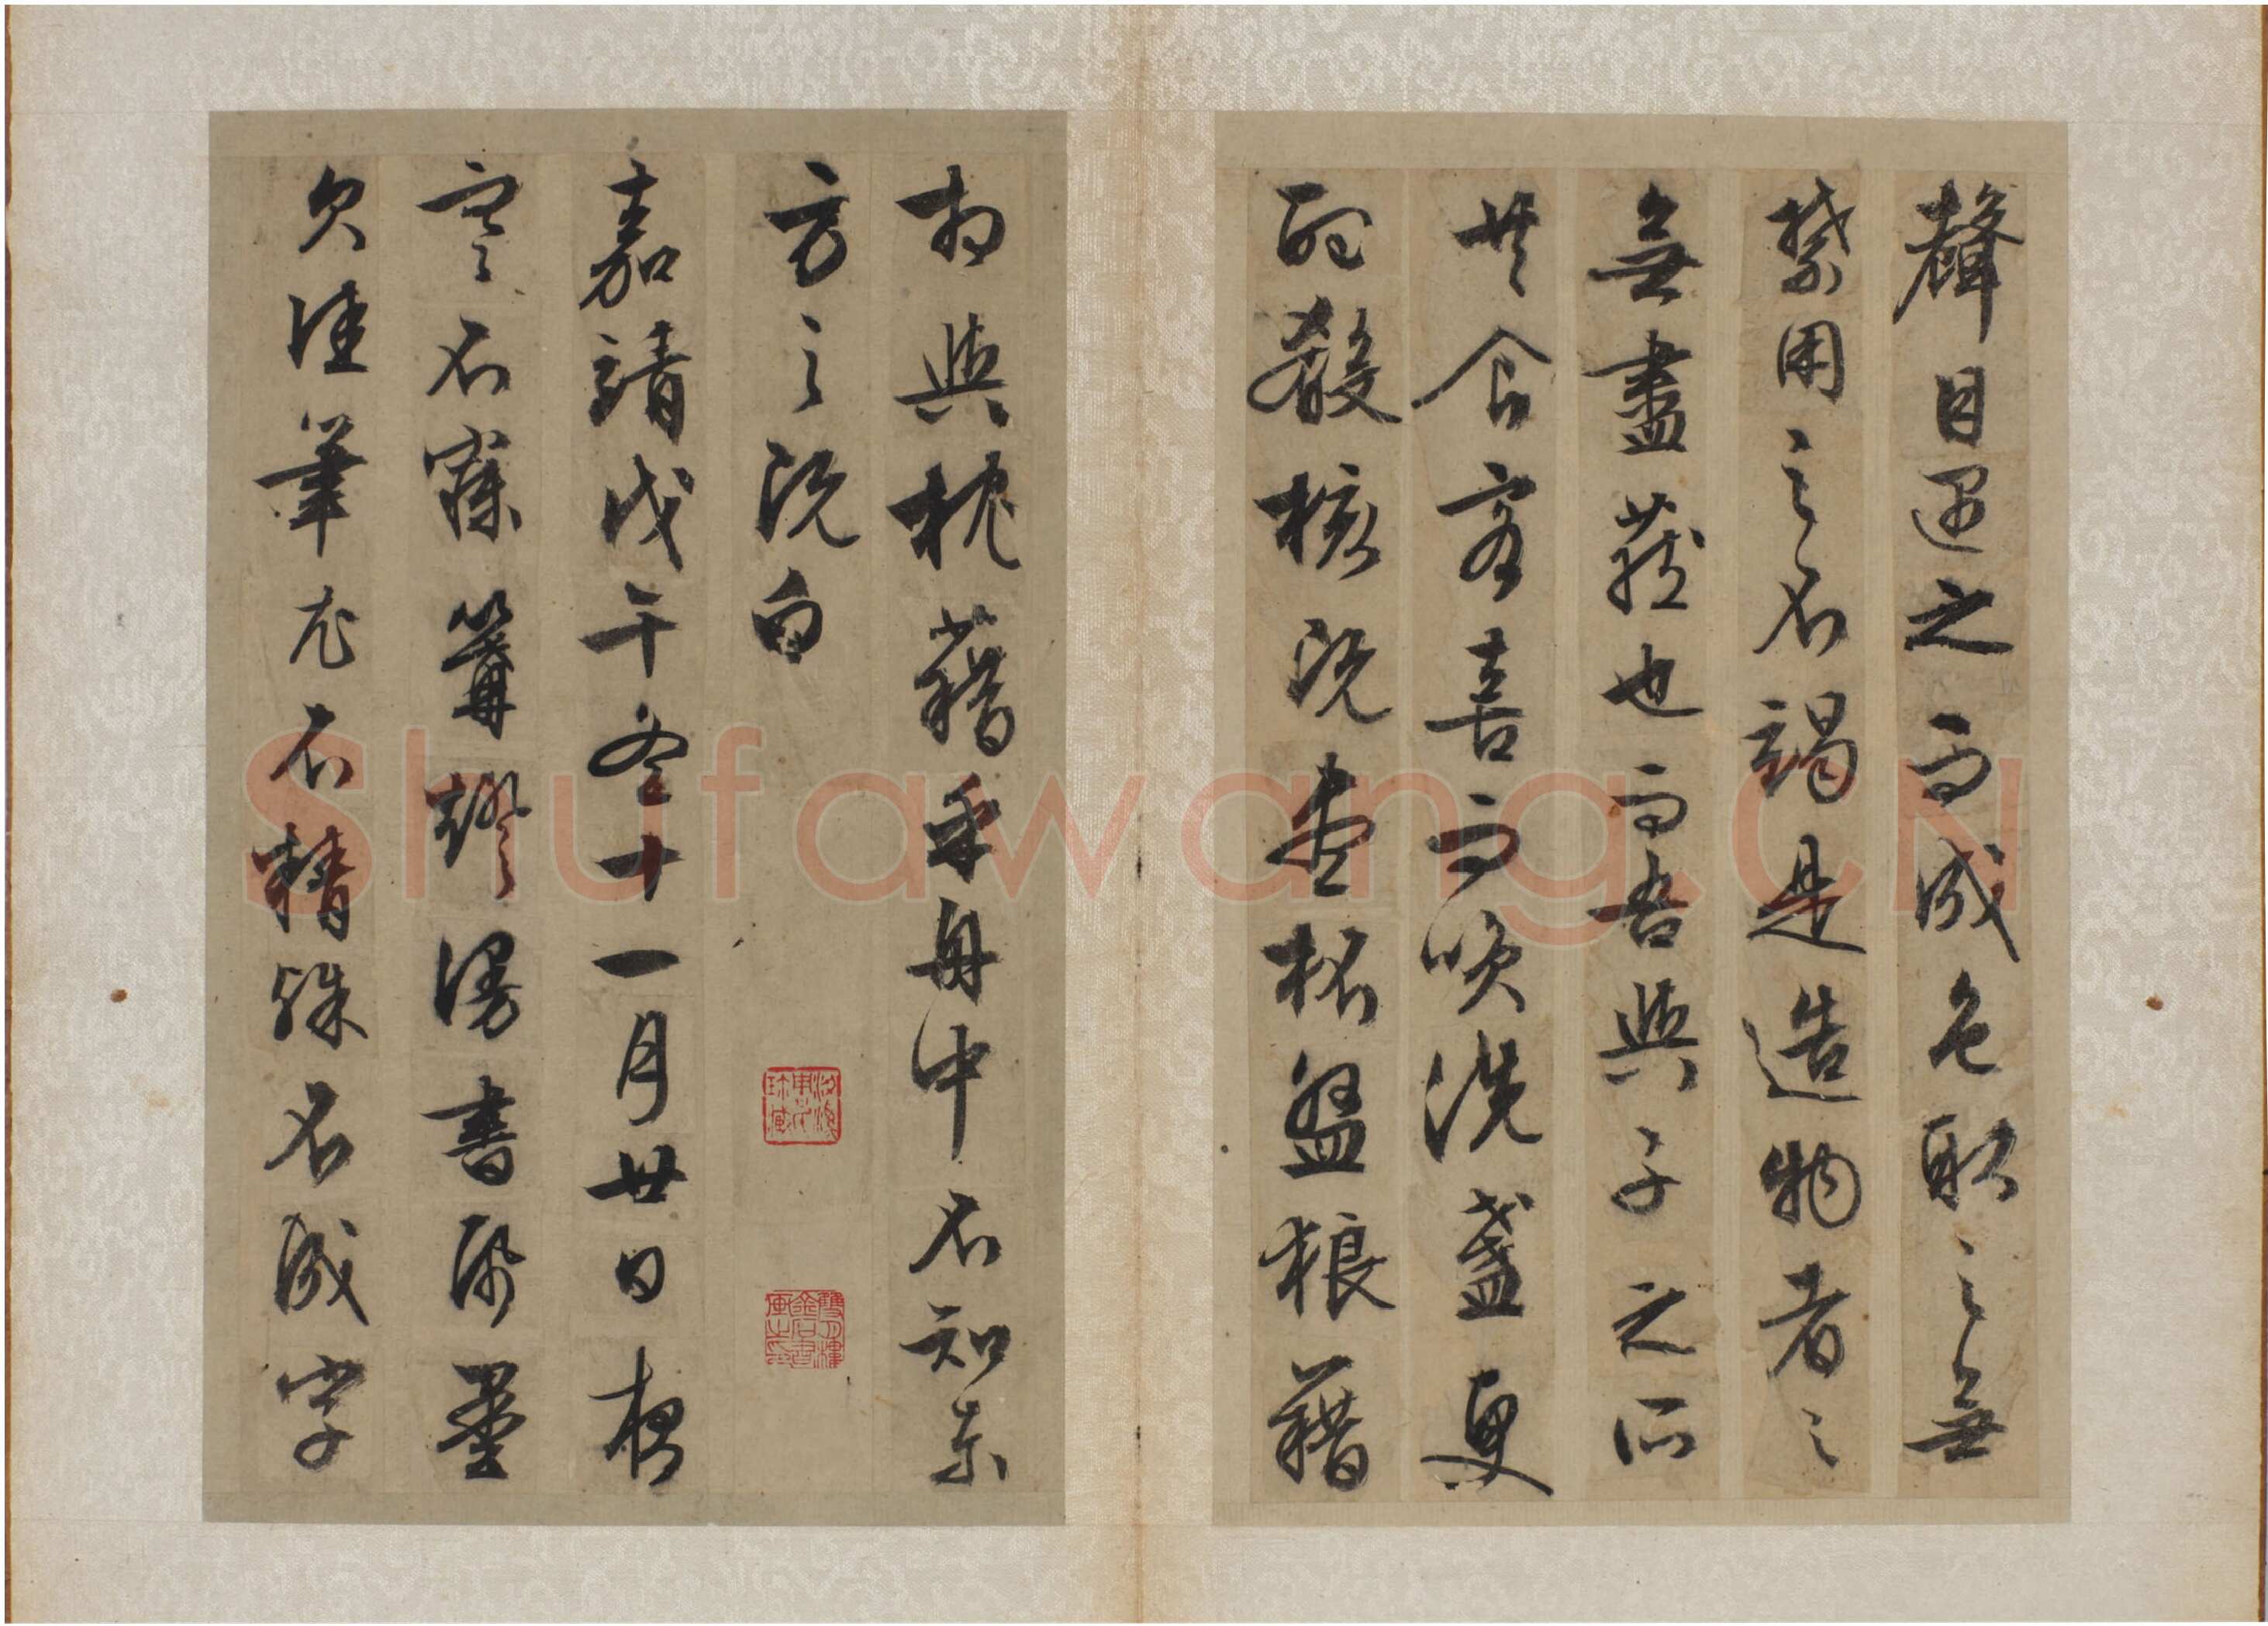 聲目遇之而成色取之無
禁用之不竭是造物者之
無盡藏也而吾與子之所
共食客喜而咲洗盞更
酌殽核既盡杯盤狼藉
相與枕藉乎舟中不知東
方之既白
嘉靖戊午冬十一月廿日夜
寒不寐篝燈漫書帋墨
欠佳筆尤不精殊不成字
Shufawang.CN